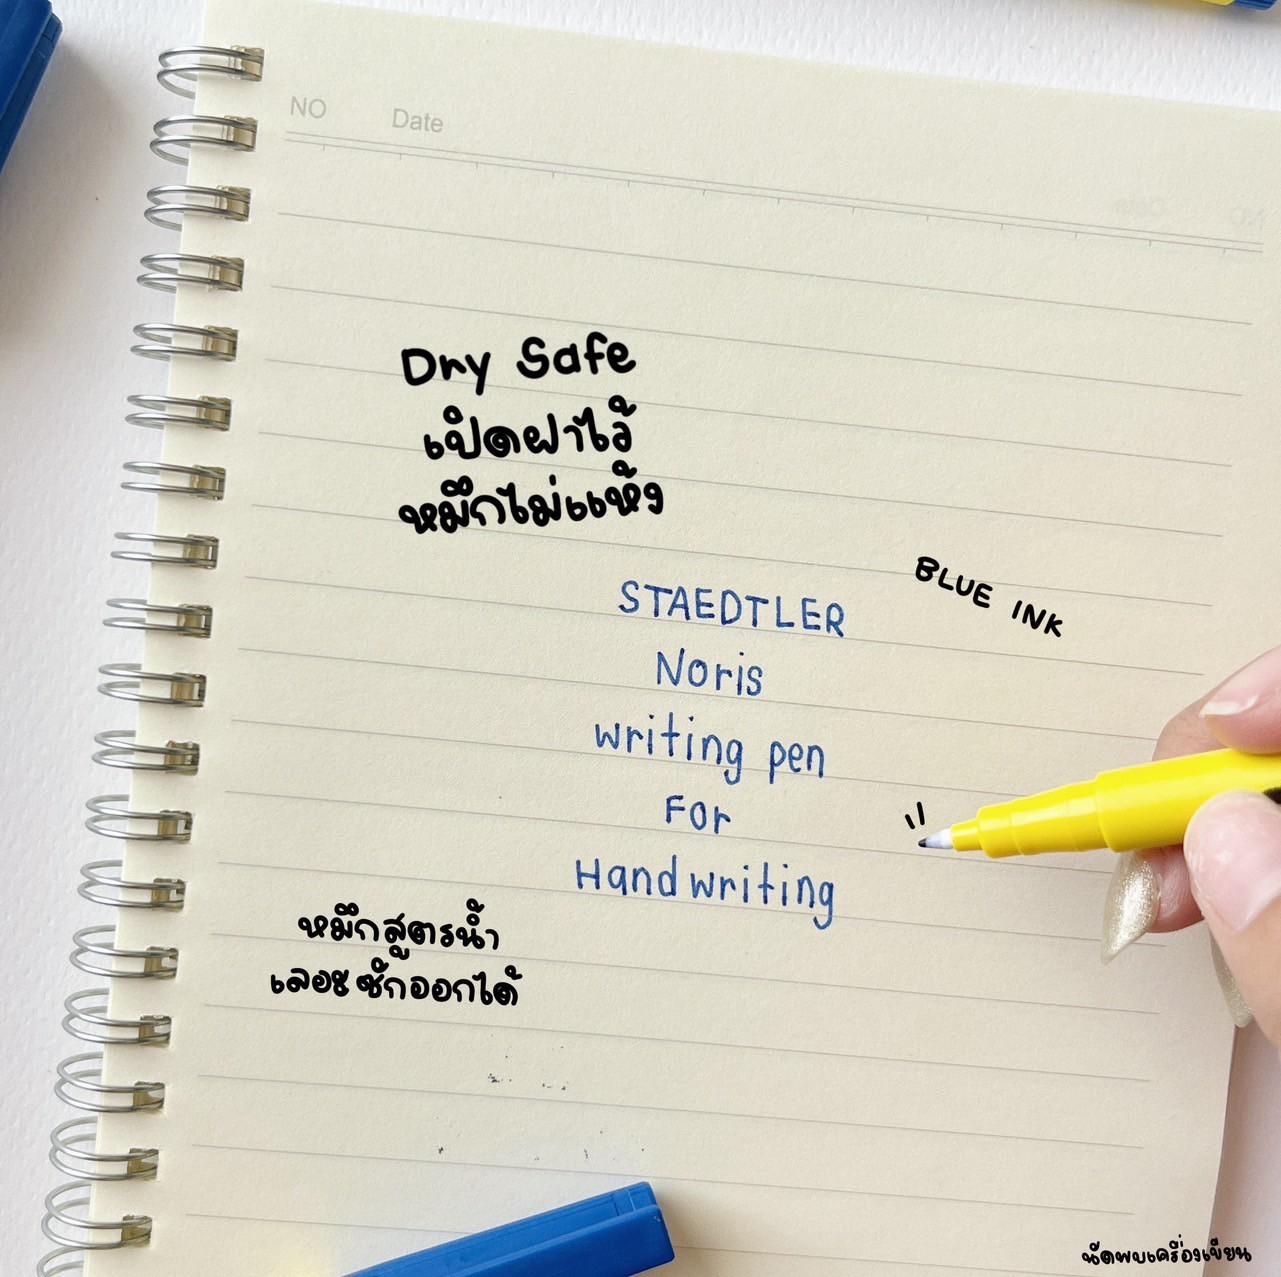 NO Date
Dry Safe
เปิดฝาไว้
หมึกไม่แห้ง
BLUE INK
STAEDTLER
Noris
writing pen
For
Handwriting
หมึกสูตรน้ำ
เลอะซักออกได้
นัดพบเครื่องเขียน